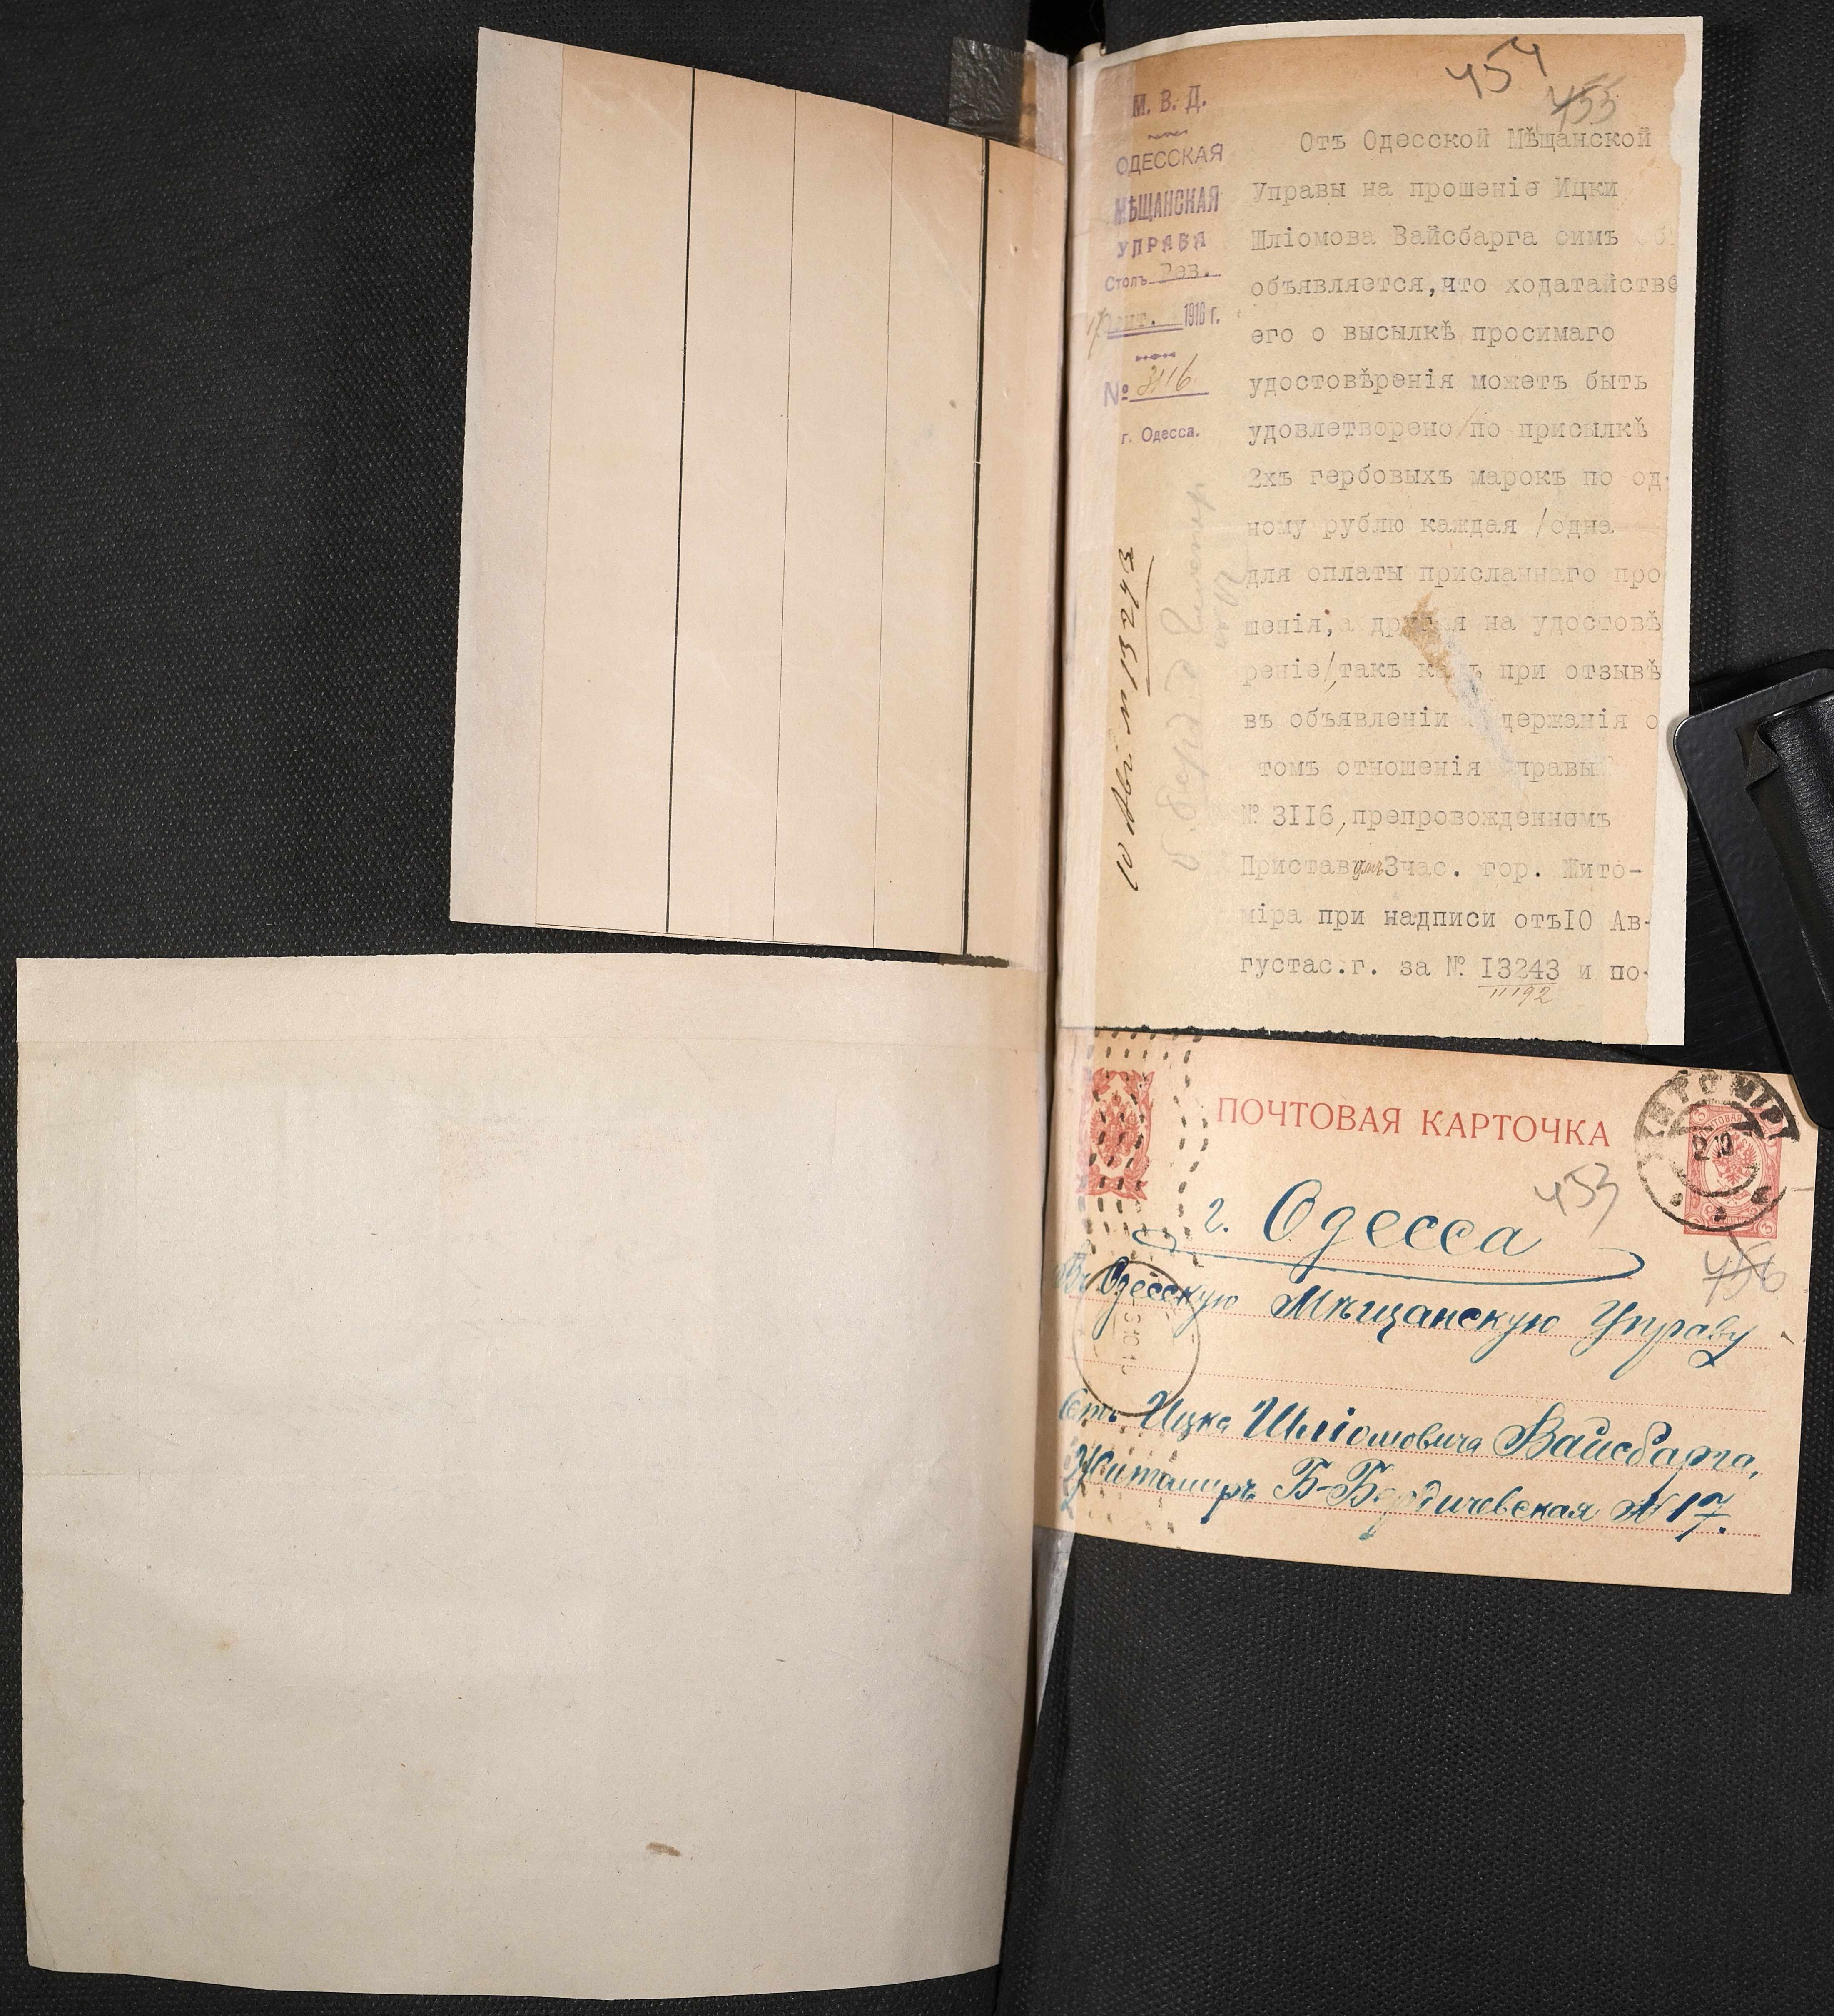 454
455
М. В. Д.
ОДЕССКАЯ
МѢЩАНСКАЯ
УПРАВА
Столъ Рев.
1916 г.
№ 3116
г. Одесса.
10 Авг. № 13243
Отъ Одесской Мѣщанской
Управы на прошеніе Ицки
Шліомова Вайсбарга симъ об
объявляется,что ходатайство
его о высылкѣ просимаго
удостовѣренія можетъ быть
удовлетворено/по присылкѣ
2хъ гербовыхъ марокъ по од
ному рублю каждая /одна
для оплаты присланнаго про
шенія,а другая на удостовѣ
реніе/,такъ какъ при отзывѣ
въ объявленіи держанія о
томъ отношенія правы
№ 3II6,препровожденномъ
Приставомъ 3час. гор. Жито-
міра при надписи отъIO Ав-
густас.г. за № I3243 и по-
11192
ПОЧТОВАЯ КАРТОЧКА
ЖИТОМІР
453
456
г. Одесса
Въ Одесскую Мѣщанскую Управу
Отъ Ицка Шліомовича Вайсбарга,
Житомиръ Б-Бердичевская № 17.